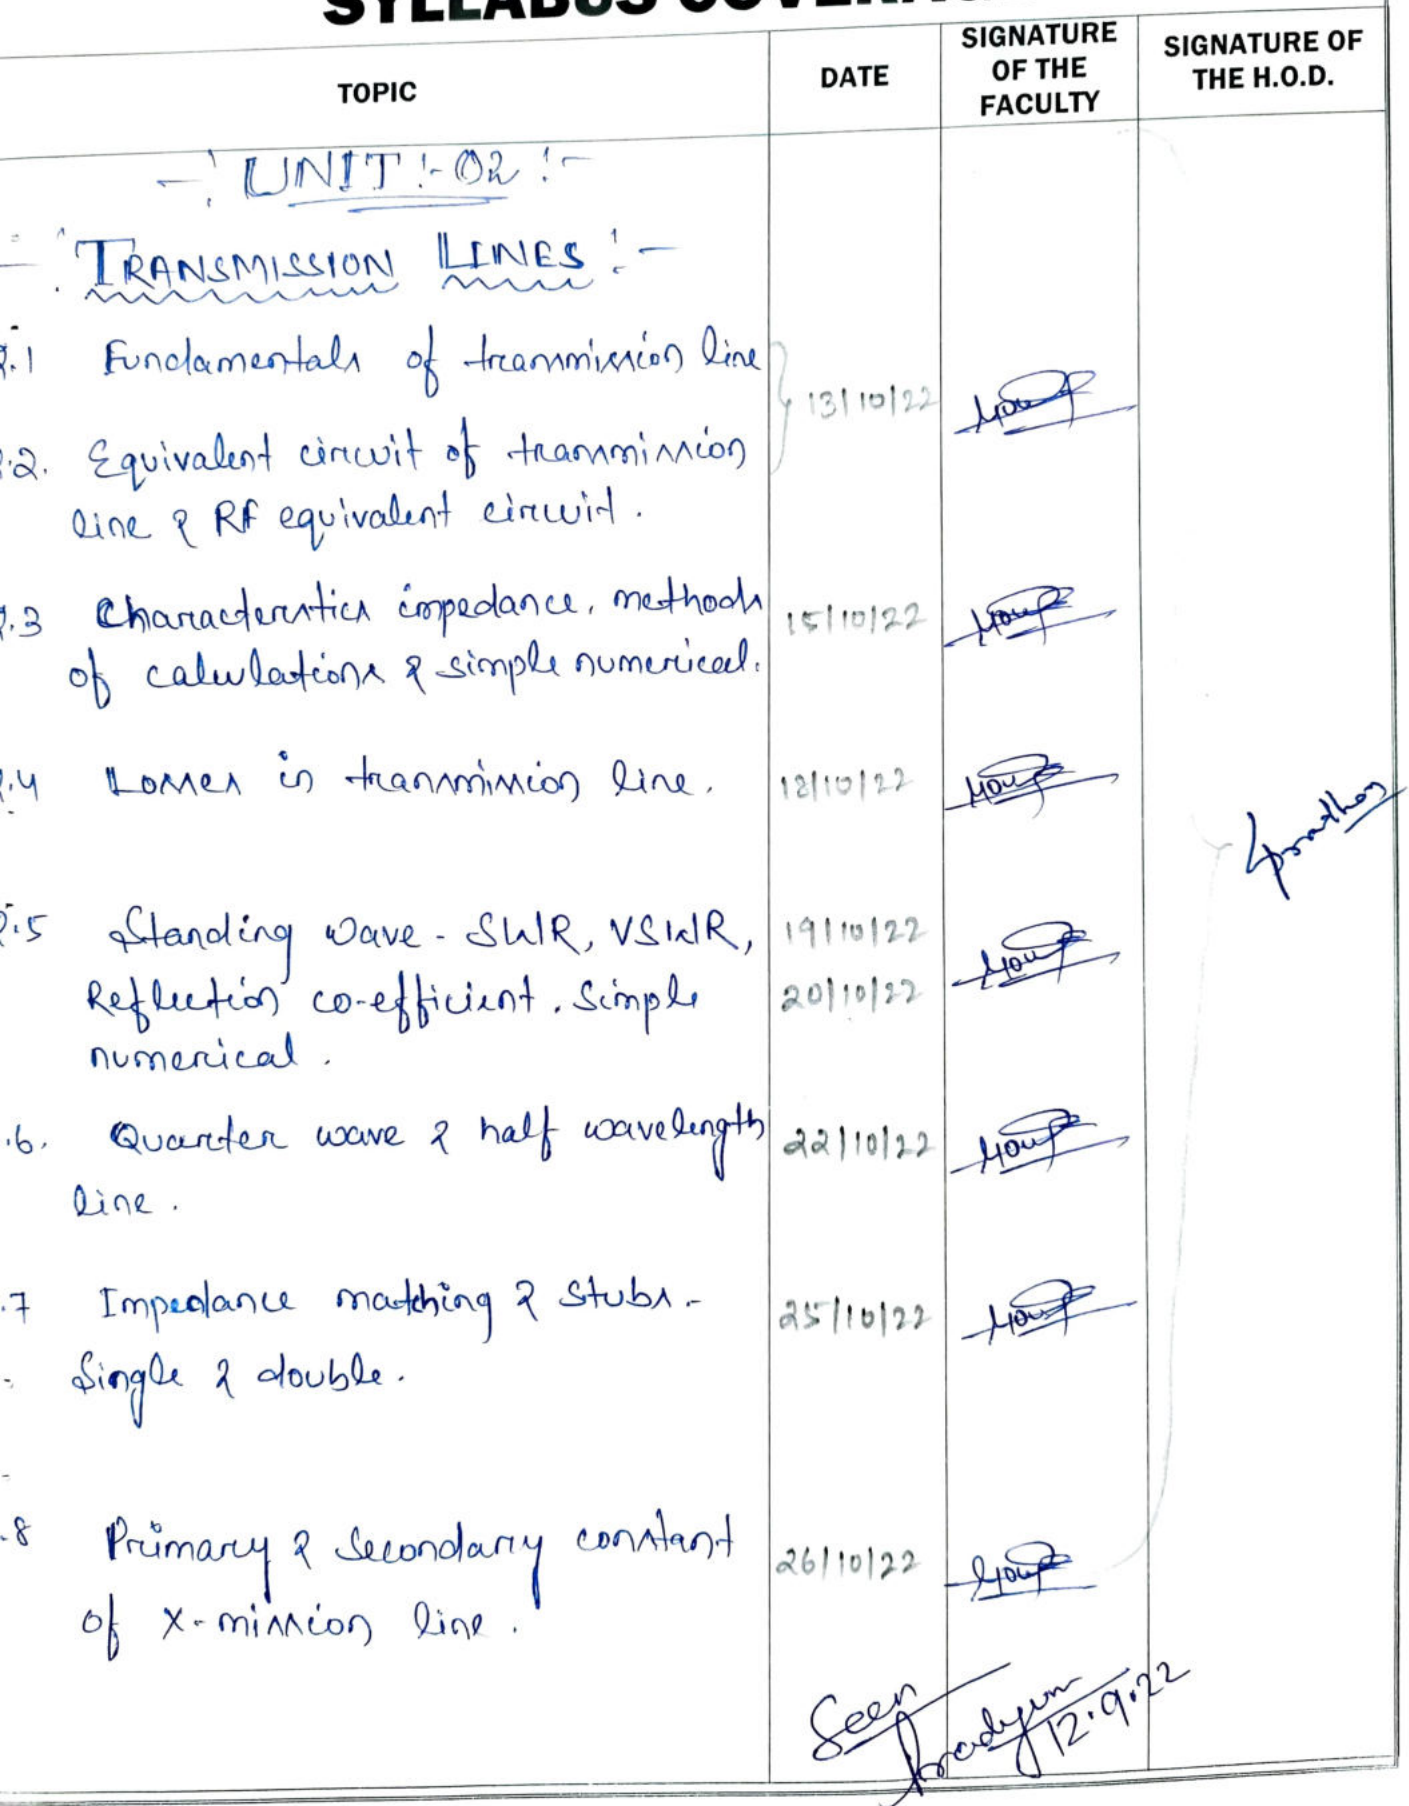 SYLLABUS COVERA
TOPIC
DATE
SIGNATURE OF THE FACULTY
SIGNATURE OF THE H.O.D.
-: UNIT :- 02 :-
TRANSMISSION LINES :-
2.1 Fundamentals of transmission line
13/10/22
2.2. Equivalent circuit of transmission
line & RF equivalent circuit.
2.3 Characteristics impedance, methods
15/10/22
of calculations & simple numerical.
2.4 Losses in transmission line.
18/10/22
2.5 Standing wave - SWR, VSWR,
19/10/22
Reflection co-efficient. Simple
20/10/22
numerical.
.6. Quarter wave & half wavelength
22/10/22
line.
.7 Impedance matching & stubs -
25/10/22
Single & double.
.8 Primary & Secondary constant
26/10/22
of x-mission line.
Seen
12.9.22